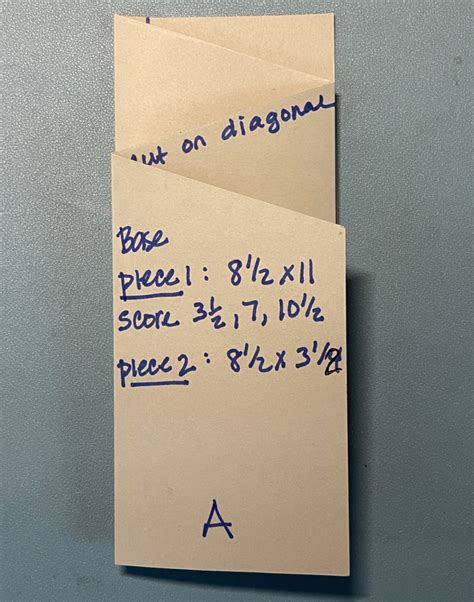 cut on diagonal
Base
piece 1 : 8 1/2 x 11
score 3 1/2, 7, 10 1/2
piece 2 : 8 1/2 x 3 1/2
A